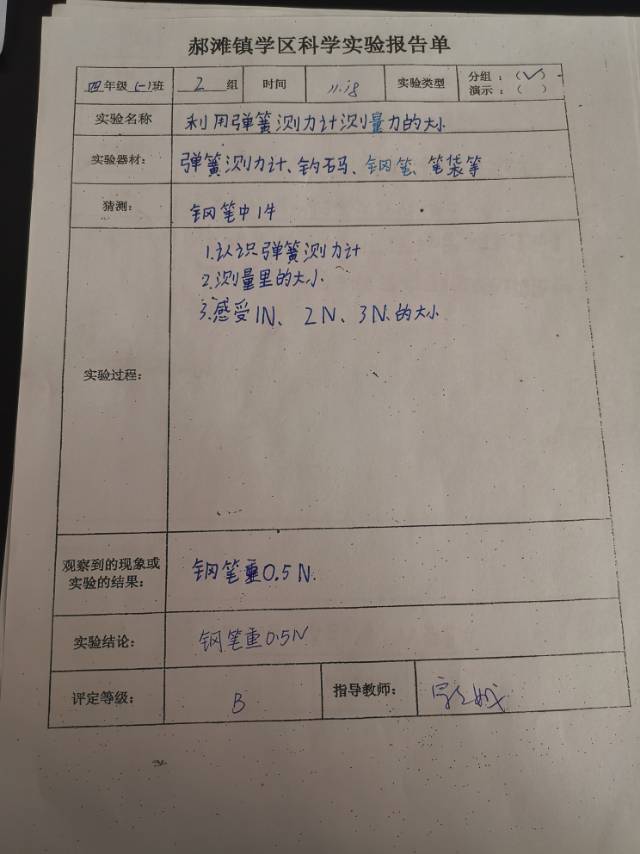 郝滩镇学区科学实验报告单
四年级(一)班 2组 时间 11.18 实验类型 分组:(√)
演示:( )
实验名称 利用弹簧测力计测量力的大小
实验器材: 弹簧测力计、钩石马、钢笔、笔袋等
猜测: 钢笔中1件
1.认识弹簧测力计
2.测量里的大小
3.感受1N、2N、3N.的大小
实验过程:
观察到的现象或
实验的结果: 钢笔重0.5N.
实验结论: 钢笔重0.5N
评定等级: B 指导教师: